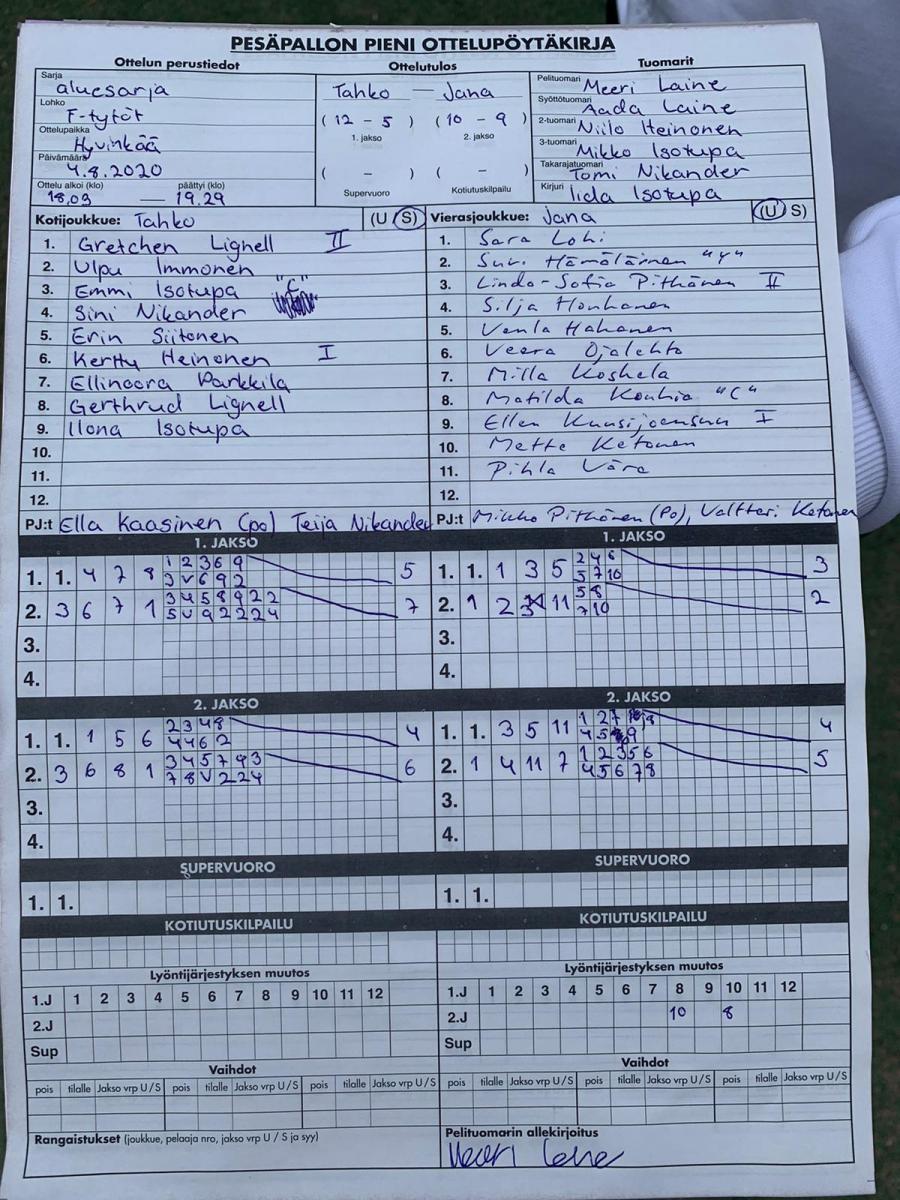 PESÄPALLON PIENI OTTELUPÖYTÄKIRJA
Ottelun perustiedot
Sarja
aluesarja
Lohko
F-tytöt
Ottelupaikka
Hyvinkää
Päivämäärä
4.8.2020
Ottelu alkoi (klo) päättyi (klo)
18.09 — 19.29
Ottelutulos
Tahko — Jana
( 12 - 5 ) ( 10 - 9 )
1. jakso 2. jakso
( - ) ( - )
Supervuoro Kotiutuskilpailu
Tuomarit
Pelituomari Meeri Laine
Syöttötuomari Aada Laine
2-tuomari Niilo Heinonen
3-tuomari Mikko Isotupa
Takarajatuomari Tomi Nikander
Kirjuri Iida Isotupa
Kotijoukkue: Tahko (U S)
1. Gretchen Lignell II
2. Ulpu Immonen
3. Emmi Isotupa "C"
4. Sini Nikander
5. Erin Siitonen
6. Kerttu Heinonen I
7. Ellinoora Parkkila
8. Gerthrud Lignell
9. Ilona Isotupa
10.
11.
12.
PJ:t Ella Kaasinen (po) Teija Nikander
Vierasjoukkue: Jana (U S)
1. Sara Lohi
2. Suvi Hämäläinen "Y"
3. Linda-Sofia Pitkänen II
4. Silja Honkanen
5. Venla Hakanen
6. Veera Ojalehto
7. Milla Koskela
8. Matilda Kouhia "C"
9. Ellen Kuusijoensuu I
10. Mette Ketonen
11. Pihla Väre
12.
PJ:t Mikko Pitkänen (Po), Valtteri Ketonen
1. JAKSO
1. 1. 4 7 8 1 2 3 6 9 5
3 V 6 9 2
2. 3 6 7 1 3 4 5 8 9 2 2 7
5 V 9 2 2 2 4
3.
4.
1. JAKSO
1. 1. 1 3 5 2 4 6 3
5 7 10
2. 1 2 3 11 5 8 2
7 10
3.
4.
2. JAKSO
1. 1. 1 5 6 2 3 4 8 4
4 4 6 2
2. 3 6 8 1 3 4 5 7 9 3 6
7 8 V 2 2 4
3.
4.
2. JAKSO
1. 1. 3 5 11 1 2 7 8 4
4 5 9
2. 1 4 11 7 1 2 3 5 6 5
4 5 6 7 8
3.
4.
SUPERVUORO
1. 1.
SUPERVUORO
1. 1.
KOTIUTUSKILPAILU
KOTIUTUSKILPAILU
Lyöntijärjestyksen muutos
1.J 1 2 3 4 5 6 7 8 9 10 11 12
2.J
Sup
Lyöntijärjestyksen muutos
1.J 1 2 3 4 5 6 7 8 9 10 11 12
2.J 10 8
Sup
Vaihdot
pois tilalle Jakso vrp U / S pois tilalle Jakso vrp U / S pois tilalle Jakso vrp U / S
Vaihdot
pois tilalle Jakso vrp U / S pois tilalle Jakso vrp U / S pois tilalle Jakso vrp U / S
Rangaistukset (joukkue, pelaaja nro, jakso vrp U / S ja syy)
Pelituomarin allekirjoitus
Meeri Laine